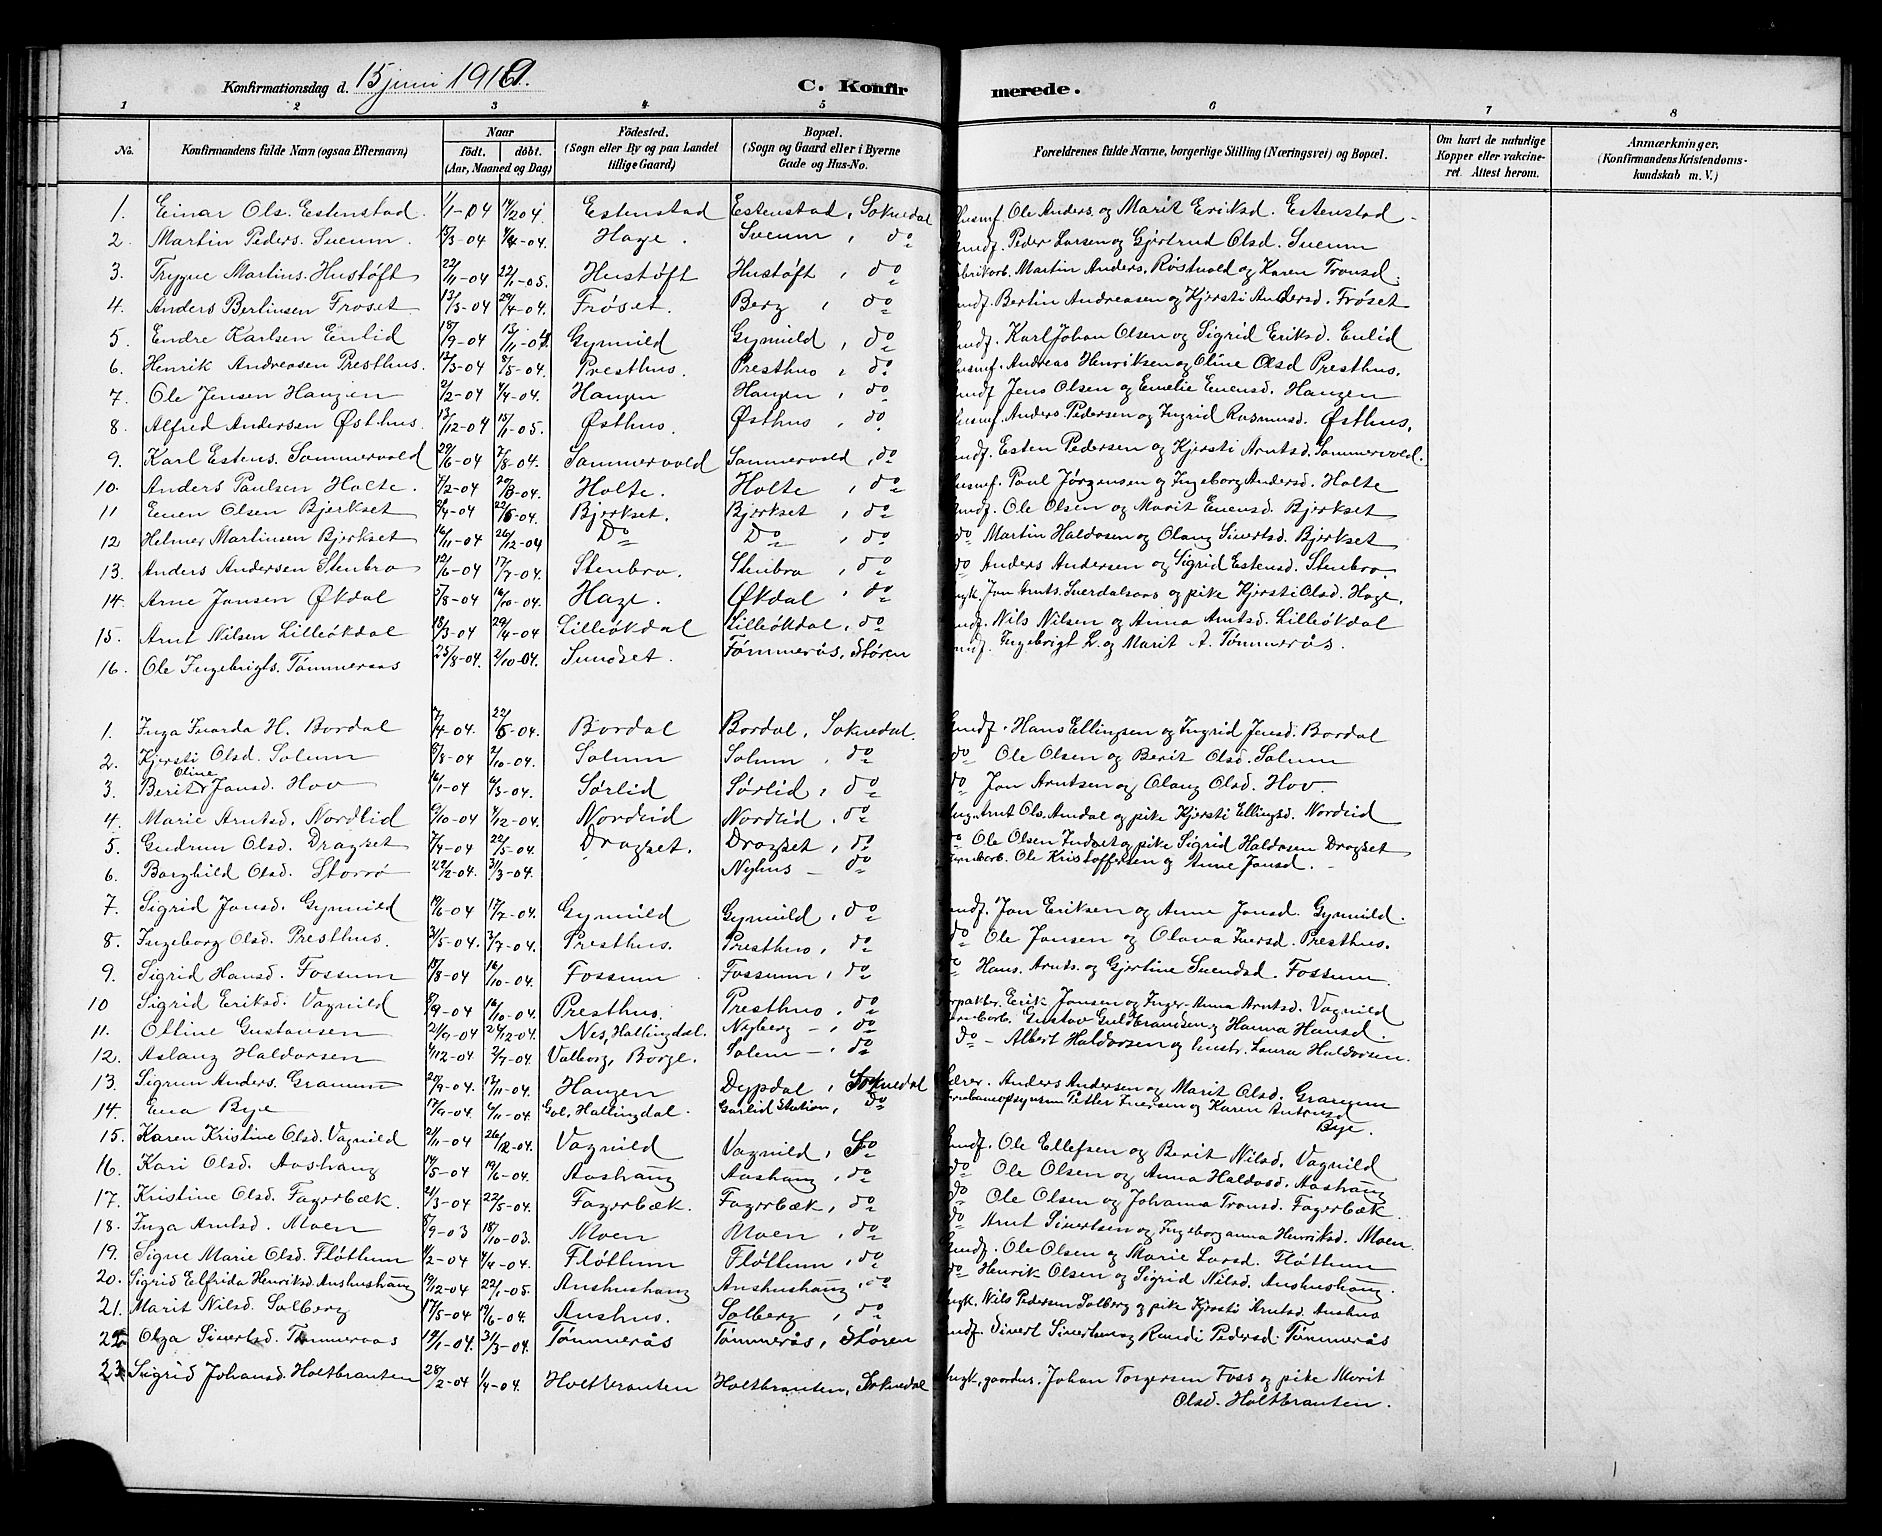 Konfirmationsdag d. 15 juni 1919. C. Konfirmerede.
1 2 3 4 5 6 7 8
No. | Konfirmandens fulde Navn (ogsaa Efternavn) | Naar født. døbt. (Aar, Maaned og Dag) | Födested. (Sogn eller By og paa Landet tillige Gaard) | Bopæl. (Sogn og Gaard eller i Byerne Gade og Hus-No. | Forældrenes fulde Navne, borgerlige Stilling (Næringsvei) og Bopæl. | Om havt de naturlige Kopper eller vakcineret. Attest herom. | Anmærkninger. (Konfirmandens Kristendomskundskab m. V.)
1. Einar Ols. Estenstad. 1/1-04 14/2 04. Estenstad Estenstad, Soknedal Husmf. Ole Anders. og Marit Eriksd. Estenstad
2. Martin Peders. Sveum. 15/3-04 4/4-04. Hage. Sveum, do Gmdf. Peder Larsen og Gjertrud Olsd. Sveum
3. Trygve Martins. Hustøft 22/11-04 22/1-05. Hustøft Hustøft, do Martin Anders. Röstvold og Karen Tronsd.
4. Anders Berlinsen Frøset 13/3-04 24/4-04. Frøset. Berg, do Gmdf. Bertin Andreasen og Kjersti Andersd. Frøset
5. Endre Karlsen Enlid 18/9-04 13/11-04. Gynvild Gynvild, do Gmdf. Karl Johan Olsen og Sigrid Eriksd. Enlid
6. Henrik Andreasen Presthus. 12/3-04 8/5-04. Presthus. Presthus, do Husmf. Andreas Henriksen og Oline Olsd Presthus.
7. Ole Jensen Haugen 2/2-04 4/4-04. Haugen Haugen, do Gmdf Jens Olsen og Emelie Evensd. Haugen
8. Alfred Andersen Østhus. 13/12-04 15/1-05. Østhus. Østhus, do Husmf. Anders Pedersen og Ingrid Rasmusd. Østhus.
9. Karl Estens. Sommervold 29/6-04 7/8-04. Sommervold Sommervold, do Gmdf. Esten Pedersen og Kjersti Arntsd. Sommervold.
10. Anders Paulsen Holte. 7/2-04 20/3-04. Holte. Holte, do Husmf. Paul Jørgensen og Ingeborg Andersd. Holte
11 Even Olsen Bjerkset 24/4-04 22/5-04. Bjerkset. Bjerkset, do Gmdf. Ole Olsen og Marit Evensd. Bjerkset
12 Helmer Martinsen Bjerkset 16/11-04 26/12-04 Do Do do do Martin Haldosen og Olaug Sivertsd. Bjerkset
13. Anders Andersen Stenbro 12/6-04 17/7-04. Stenbro. Stenbro, do do Anders Andersen og Sigrid Estensd. Stenbro.
14. Arne Jonsen Økdal 5/8-04 16/10-04. Hage. Økdal, do Ungk. Jon Arnts. Sverdalsaas og pike Kjersti Olsd. Hage.
15. Arnt Nilsen Lilleøkdal 18/3-04 29/4-04 Lilleøkdal Lilleøkdal, do Gmdf. Nils Nilsen og Anna Arntsd. Lilleøkdal
16. Ole Ingebrigts. Tømmeraas 25/8-04. 2/10-04. Sundset. Tømmerås, Støren Gmdf. Ingebrigt L. og Marit A. Tømmerås.
1. Inga Ivarda H. Bordal 7/4-04. 22/5-04. Bordal Bordal, Soknedal. Gmdf. Hans Ellingsen og Ingrid Jensd. Bordal
2. Kjersti Olsd. Solum 8/8-04 2/10-04. Solum Solum, do do Ole Olsen og Berit Olsd. Solum
3. Berit Oline Jonsd. Hov 16/1-04 6/3-04. Sørlid Sørlid, do do Jon Arntsen og Olaug Olsd. Hov.
4. Marie Arntsd. Nordlid 9/10-04 4/12-04. Nordlid Nordlid, do Ung. Arnt Ols. Amdal og pike Kjersti Ellingsd. Nordlid
5. Gudrun Olsd. Dragset 7/4-04 22/5-04. Dragset. Dragset, do do Ole Olsen Indset og pike Sigrid Haldosen Dragset
6. Borghild Olsd. Storrø 22/2-04. 3/3-04. Nyhus - do Jernbarb. Ole Kristoffersen og Anne Jonsd.
7. Sigrid Jonsd. Gynvild 19/6-04 17/7-04. Gynvild Gynvild, do Gmdf. Jon Eriksen og Anne Jonsd. Gynvild.
8. Ingeborg Olsd. Presthus. 31/5-04. 3/7-04. Presthus. Presthus, do do Ole Jonsen og Olava Iversd. Presthus.
9. Sigrid Hansd. Fossum 18/8-04 16/10-04. Fossum Fossum, do do Hans. Arnts. og Gjertine Svendsd. Fossum.
10 Sigrid Eriksd. Vagnild 8/9-04 16/10-04. Presthus. Presthus, do Erik Jonsen og Inger-Anna Arntsd. Vagnild
11. Otline Gustavsen 21/9-04 24/12-04. Nes, Hallingdal. Nyberg -, do Gustav Guldbrandsen og Hanna Hansd.
12. Aslaug Haldorsen 4/12-04 2/7-04. Valborg, Borge. Solem -, do do - Albert Haldorsen og hustr. Laura Haldorsen.
13. Sigrun Anders. Gramum 20/9-04. 13/11-04. Haugen Dypdal, Soknedal Lærer. Anders Andersen og Marit Olsd. Gramum
14. Ena Bye 17/9-04. 6/11-04. Gol, Hallingdal. Garlid Station, do Petter Iversen og Karen Antonsd Bye.
15. Karen Kristine Olsd. Vagnild 21/11-04 26/12-04. Vagnild Vagnild, do Gmdf. Ole Ellefsen og Berit Nilsd. Vagnild
16. Kari Olsd. Aashaug 14/5-04 19/6-04. Aashaug Aashaug, do do Ole Olsen og Anna Haldosd. Aashaug
17. Kristine Olsd. Fagerbæk. 21/3-04 22/5-04. Fagerbæk Fagerbæk, do do Ole Olsen og Johanna Tronsd. Fagerbæk.
18. Inga Arntsd. Moen 8/9-03 18/10-03. Moen Moen, do do Arnt Sivertsen og Ingeborganna Henriksd. Moen.
19. Signe Marie Olsd. Fløttum 4/2-04 4/4-04. Fløttum Fløttum, do Gmdf. Ole Olsen og Marie Larsd. Fløttum
20. Sigrid Elfrida Henriksd. Aushushaug 19/12-04 22/1-05. Aushushaug Aushushaug, do do Henrik Olsen og Sigrid Nilsd. Aushushaug.
21. Marit Nilsd. Solberg 17/5-04 19/6-04. Aushus. Solberg, do Ungk. Nils Pedersen Solberg og pike Kjersti Arntsd. Aushus
22 Olga Sivertsd. Tømmeraas 19/1-04. 31/3-04. Tømmerås Tømmerås, Støren Gmdf. Sivert Sivertsen og Randi Pedersd. Tømmerås
23 Sigrid Johansd. Holtbrauten 28/2-04 1/4-04. Holtbrauten Holtbrauten, Soknedal Ungk, gaardm. Johan Torgersen Foss og pike Marit
Olsd. Holtbrauten.